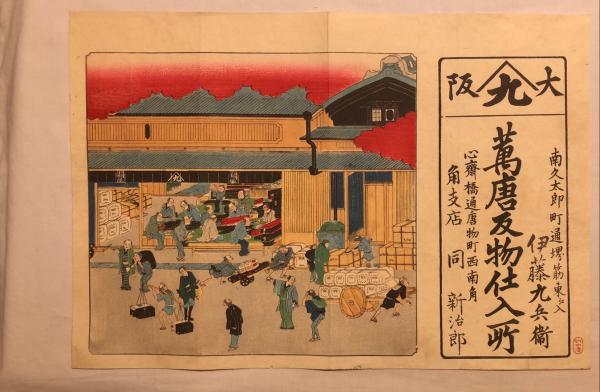 大阪
九
南久太郎町通堺筋東入
伊藤九兵衞
萬唐反物仕入所
心齋橋通唐物町西南角
角支店 同 新治郎